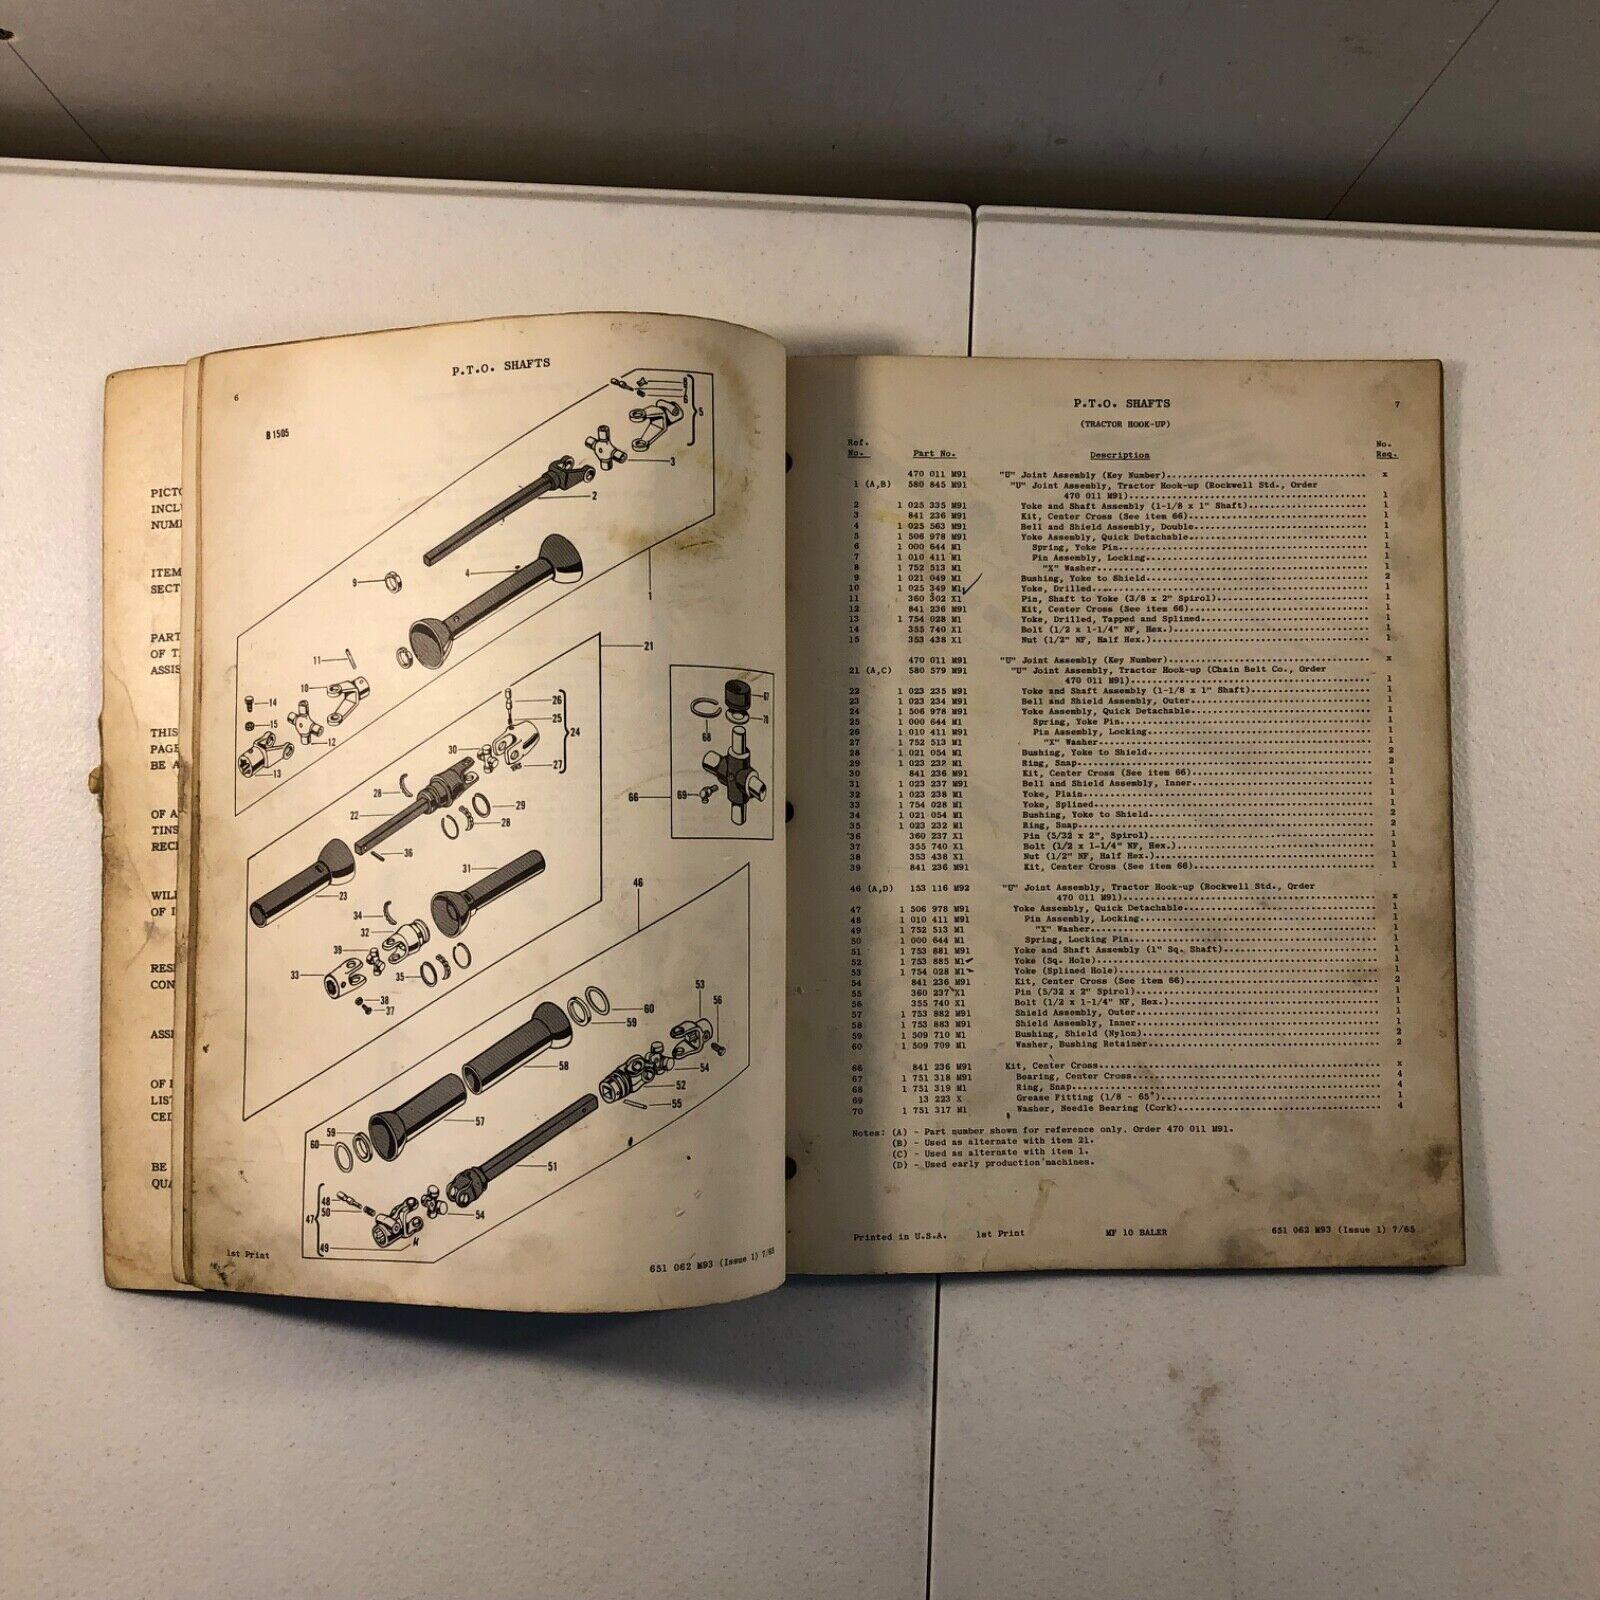 PICTO
INCLU
NUME
ITEM
SECT
PART
OF T
ASSIS
THIS
PAGE
BE A
OF A
TINS
RECE
WILL
OF I
RES
CON
ASSE
OF
LIST
CED
BE
QUA
6
P.T.O. SHAFTS
B 1505
1st Print
651 062 M93 (Issue 1) 7/65
P.T.O. SHAFTS
7
(TRACTOR HOOK-UP)
Ref. No.
No. Part No. Description Req.
470 011 M91 "U" Joint Assembly (Key Number) x
1 (A,B) 580 845 M91 "U" Joint Assembly, Tractor Hook-up (Rockwell Std., Order
470 011 M91) 1
2 1 025 335 M91 Yoke and Shaft Assembly (1-1/8 x 1" Shaft) 1
3 841 236 M91 Kit, Center Cross (See item 66) 1
4 1 025 563 M91 Bell and Shield Assembly, Double 1
5 1 506 978 M91 Yoke Assembly, Quick Detachable 1
6 1 000 644 M1 Spring, Yoke Pin 1
7 1 010 411 M91 Pin Assembly, Locking 1
8 1 752 513 M1 "X" Washer 1
9 1 021 049 M1 Bushing, Yoke to Shield 2
10 1 025 349 M1 Yoke, Drilled 1
11 360 302 X1 Pin, Shaft to Yoke (3/8 x 2" Spirol) 1
12 841 236 M91 Kit, Center Cross (See item 66) 1
13 1 754 028 M1 Yoke, Drilled, Tapped and Splined 1
14 355 740 X1 Bolt (1/2 x 1-1/4" NF, Hex.) 1
15 353 438 X1 Nut (1/2" NF, Half Hex.) 1
470 011 M91 "U" Joint Assembly (Key Number) x
21 (A,C) 580 579 M91 "U" Joint Assembly, Tractor Hook-up (Chain Belt Co., Order
470 011 M91) 1
22 1 023 235 M91 Yoke and Shaft Assembly (1-1/8 x 1" Shaft) 1
23 1 023 234 M91 Bell and Shield Assembly, Outer 1
24 1 506 978 M91 Yoke Assembly, Quick Detachable 1
25 1 000 644 M1 Spring, Yoke Pin 1
26 1 010 411 M91 Pin Assembly, Locking 1
27 1 752 513 M1 "X" Washer 1
28 1 021 054 M1 Bushing, Yoke to Shield 2
29 1 023 232 M1 Ring, Snap 2
30 841 236 M91 Kit, Center Cross (See item 66) 1
31 1 023 237 M91 Bell and Shield Assembly, Inner 1
32 1 023 238 M1 Yoke, Plain 1
33 1 754 028 M1 Yoke, Splined 1
34 1 021 054 M1 Bushing, Yoke to Shield 2
35 1 023 232 M1 Ring, Snap 2
36 360 237 X1 Pin (5/32 x 2", Spirol) 1
37 355 740 X1 Bolt (1/2 x 1-1/4" NF, Hex.) 1
38 353 438 X1 Nut (1/2" NF, Half Hex.) 1
39 841 236 M91 Kit, Center Cross (See item 66) 1
46 (A,D) 153 116 M92 "U" Joint Assembly, Tractor Hook-up (Rockwell Std., Order
470 011 M91) x
47 1 506 978 M91 Yoke Assembly, Quick Detachable 1
48 1 010 411 M91 Pin Assembly, Locking 1
49 1 752 513 M1 "X" Washer 1
50 1 000 644 M1 Spring, Locking Pin 1
51 1 753 881 M91 Yoke and Shaft Assembly (1" Sq. Shaft) 1
52 1 753 885 M1 Yoke (Sq. Hole) 1
53 1 754 028 M1 Yoke (Splined Hole) 1
54 841 236 M91 Kit, Center Cross (See item 66) 2
55 360 237 X1 Pin (5/32 x 2" Spirol) 1
56 355 740 X1 Bolt (1/2 x 1-1/4" NF, Hex.) 1
57 1 753 882 M91 Shield Assembly, Outer 1
58 1 753 883 M91 Shield Assembly, Inner 1
59 1 509 710 M1 Bushing, Shield (Nylon) 2
60 1 509 709 M1 Washer, Bushing Retainer 2
66 841 236 M91 Kit, Center Cross x
67 1 751 318 M91 Bearing, Center Cross 4
68 1 751 319 M1 Ring, Snap 4
69 13 223 X Grease Fitting (1/8 - 65°) 1
70 1 751 317 M1 Washer, Needle Bearing (Cork) 4
Notes: (A) - Part number shown for reference only. Order 470 011 M91.
(B) - Used as alternate with item 21.
(C) - Used as alternate with item 1.
(D) - Used early production machines.
Printed in U.S.A. 1st Print MF 10 BALER 651 062 M93 (Issue 1) 7/65